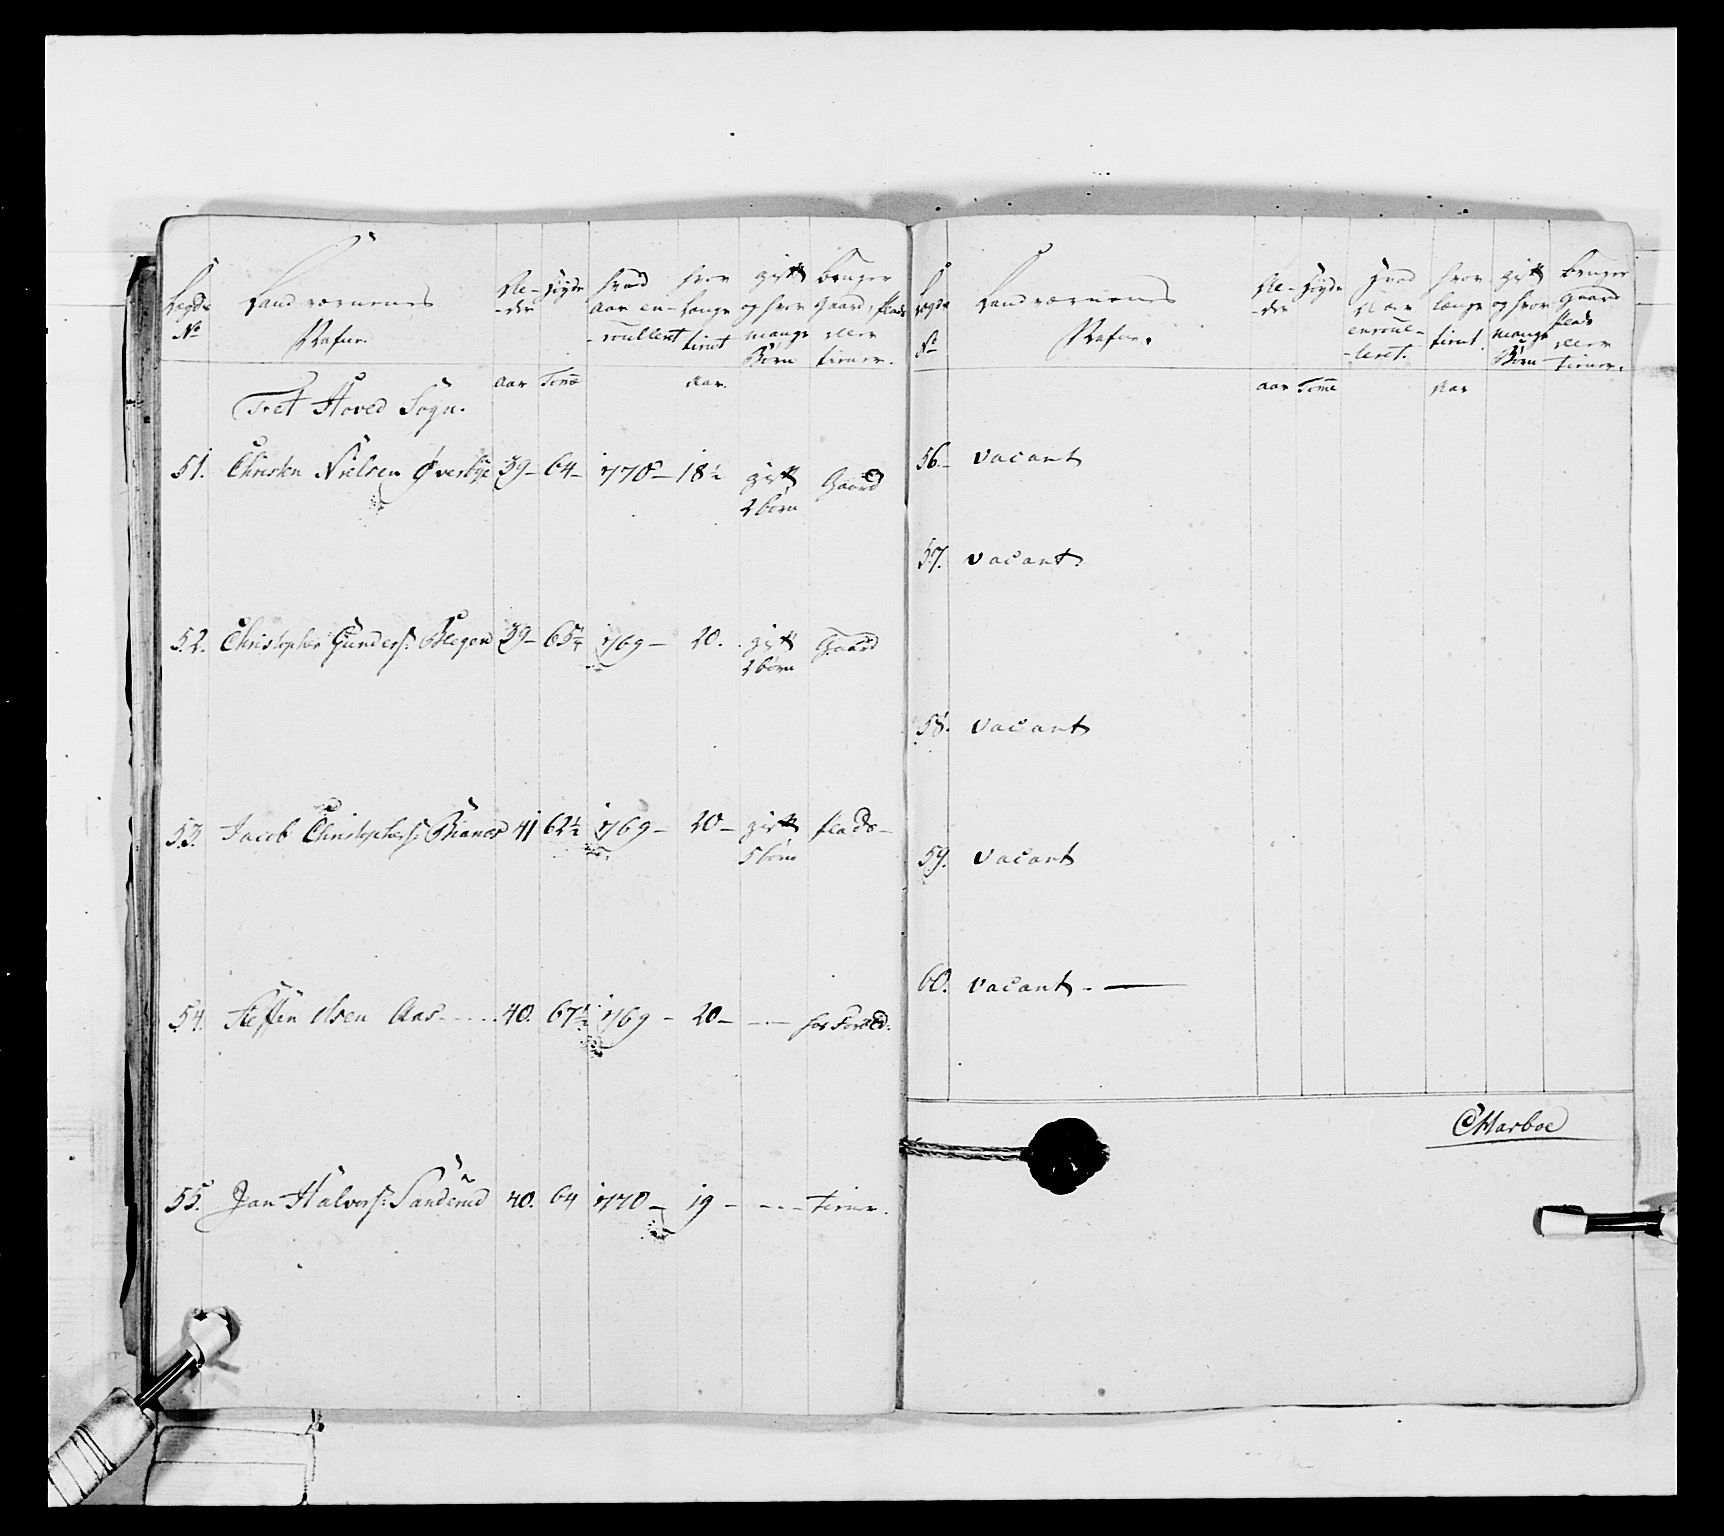 Lægds No | Landværnenes Nafne. | Al-der | Høyde | Hvad Aar en-roulleret | hvor længe tient | gift og hvor mange Børn | bruger Gaard, Plads eller tiener.
Aar | Tome | Aar.
Tret Hoved Sogn.
51. Christen Nielsen Øverbye 39– 64– 1770– 18½ gift Gaard
2 børn
52. Christopher Gunders: Blegen 39– 65¼ 1769– 20. gift Gaard
2 børn
53. Jacob Christophers: 41 62½ 1769– 20– gift Plads–
5 børn
54. Steffen Olsen Aas 40. 67½ 1769– 20– – – – hos Foræld:
55. Jan Halvors: Sanderud 40. 64 1770– 19 – – – – tiener.
Lægds No | Landværnenes Nafne. | Al-der | Høyde | Hvad Aar enroul-leret. | hvor længe tient. | gift og hvor mange Børn | bruger Gaard Plads eller tiener.
Aar | Tome | Aar
56.– vacant
57. vacant.
58. vacant
59. vacant
60. vacant. –
CHarboe